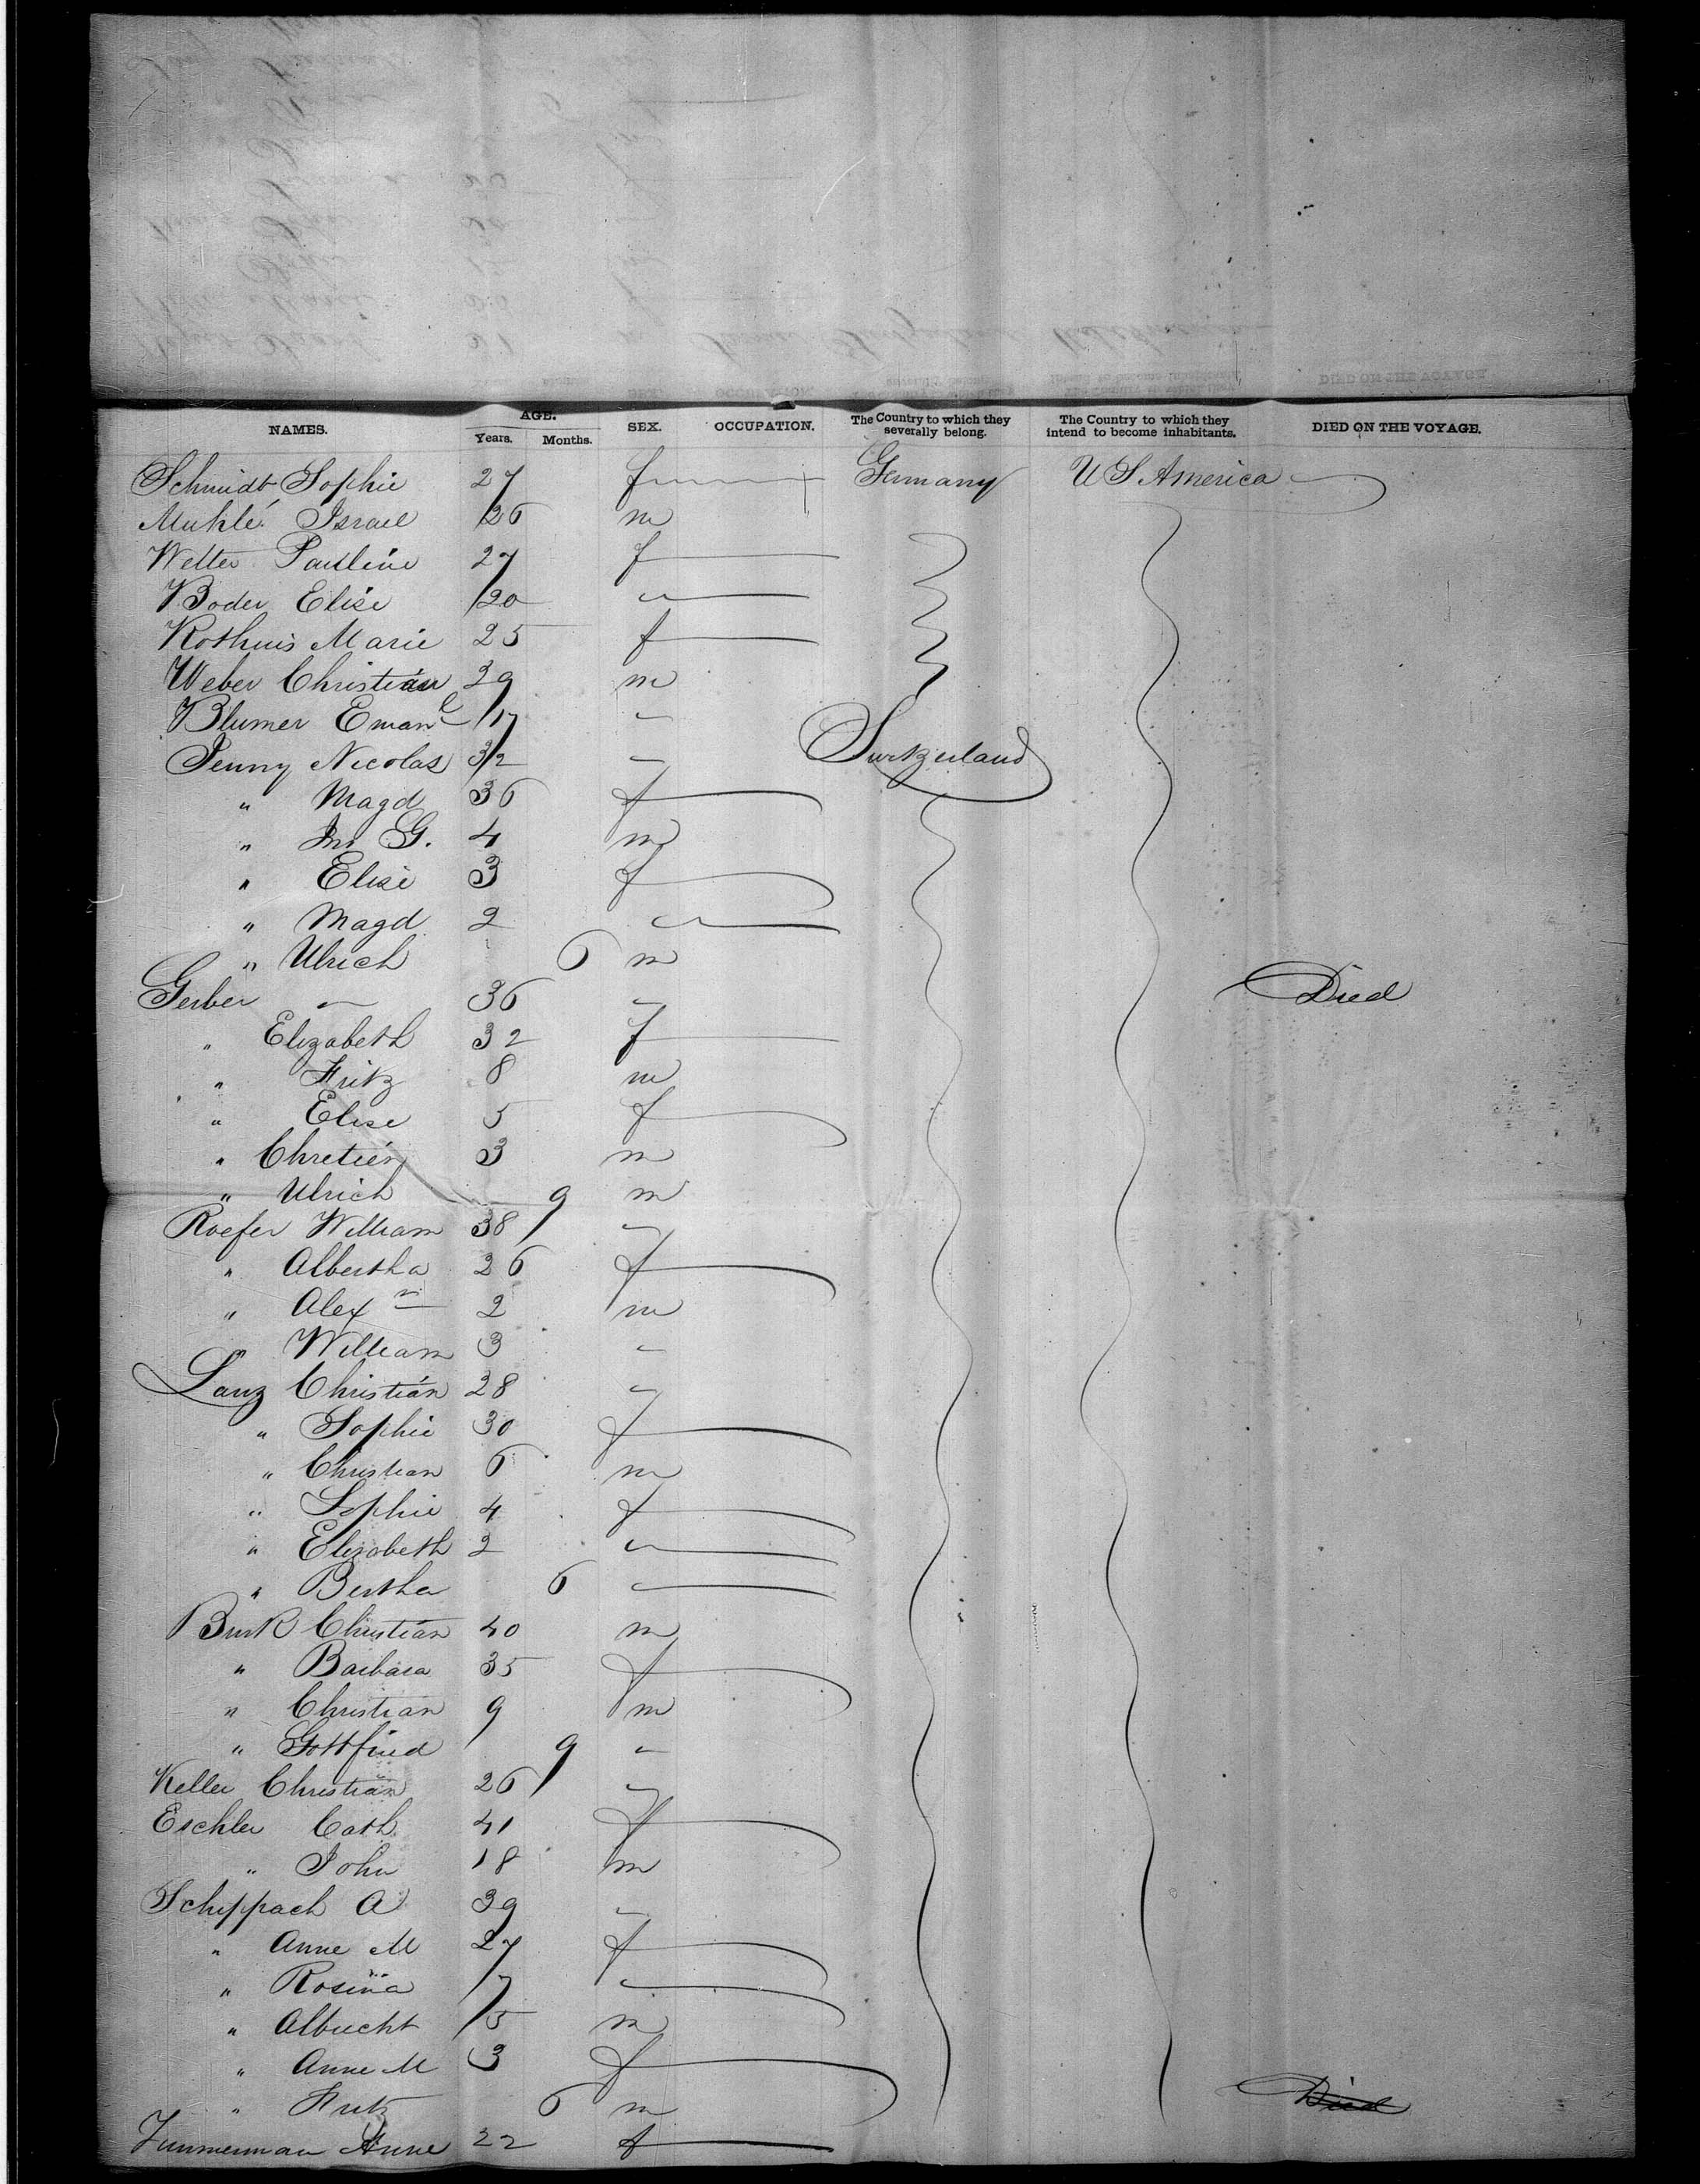 NAMES. AGE. Years. Months. SEX. OCCUPATION. The Country to which they severally belong. The Country to which they intend to become inhabitants. DIED ON THE VOYAGE.
Schmidt Sophie 27 f Germany U S America
Muhlé Israel 26 m
Welter Pauline 27 f
Boder Elise 20 "
Rothuis Marie 25 f
Weber Christian 29 m
Blumer Emanl 17 "
Jenny Nicolas 32 " Switzerland
" Magd 36 f
" Jn G. 4 m
" Elise 3 f
" Magd 2 "
" Ulrich 6 m
Gerber " 36 " Died
" Elizabeth 32 f
" Fritz 8 m
" Elise 5 f
" Chretien 3 m
" Ulrich 9 m
Roefer William 38 "
" Albertha 26 f
" Alexr 2 m
" William 3 "
Lanz Christian 28 "
" Sophie 30 f
" Christian 6 m
" Sophie 4 f
" Elizabeth 2 "
" Bertha 6 "
Burk Christian 40 m
" Barbara 35 f
" Christian 9 m
" Gottfried 9 "
Keller Christian 26 "
Eschler Cath. 41 f
" John 18 m
Schippach A 39 "
" Anne M 27 f
" Rosina 7 "
" Albrecht 5 m
" Anne M 3 f
" Fritz 6 m Died
Zimmerman Anne 22 f